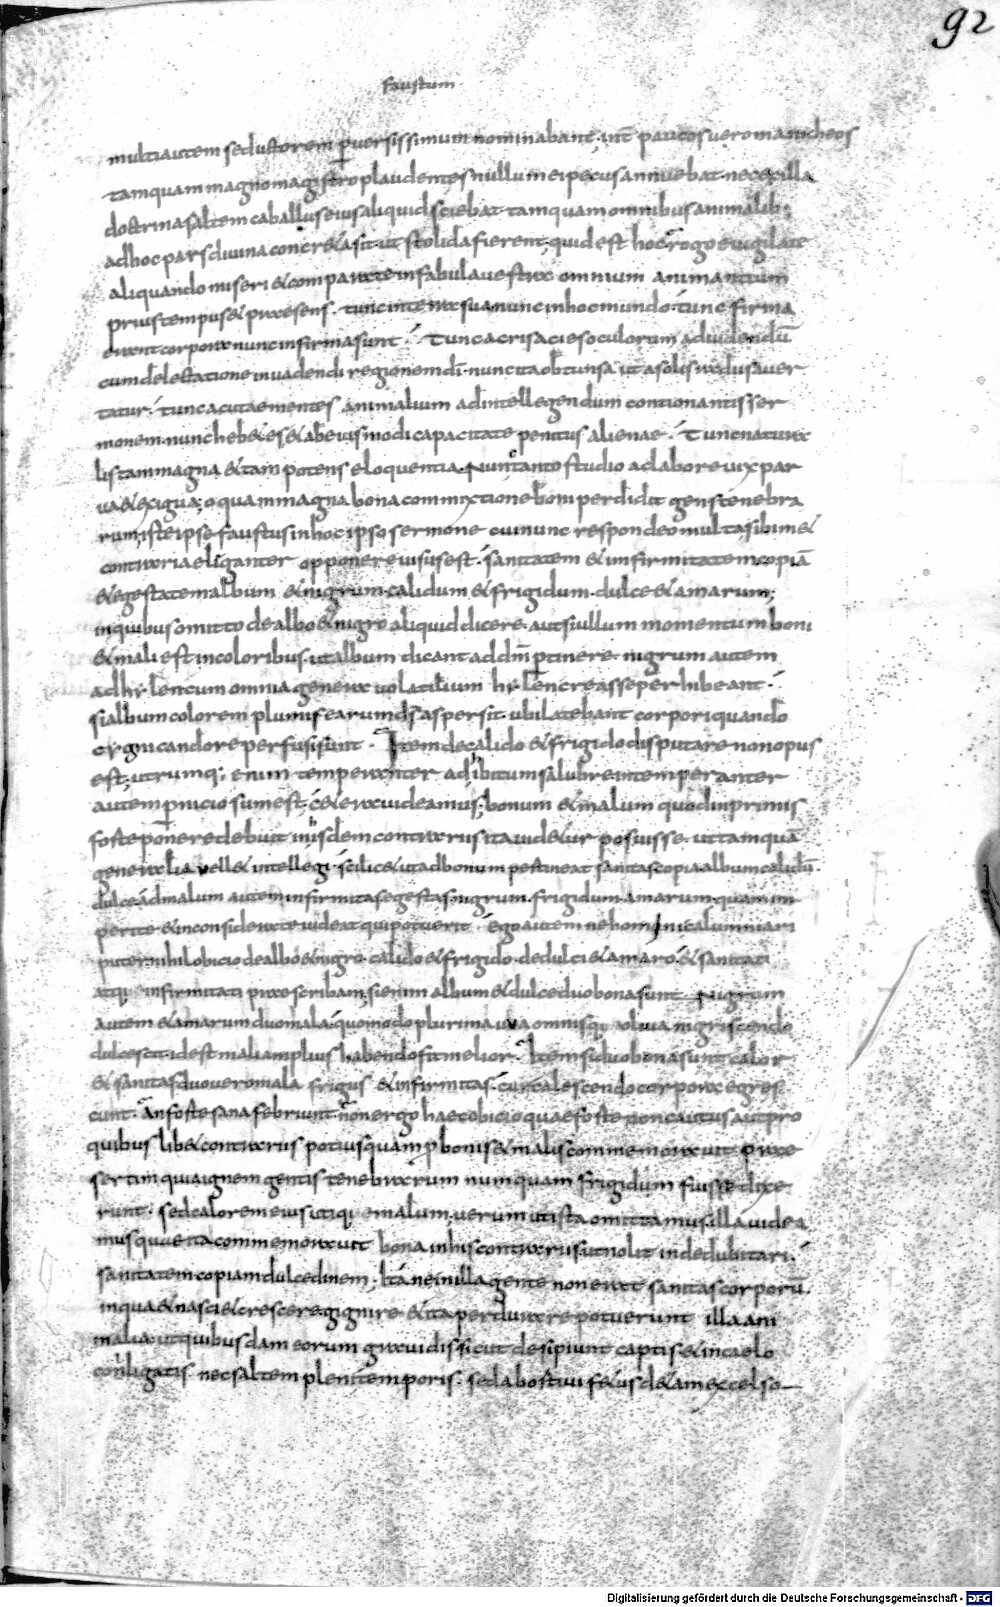 92
faustum
multi autem seductorem pversissimum nominabant; int paucos vero manicheos
tamquam magno magistro plaudentes nullum ei pecus annuebat nec ex illa
doctrina saltem caballus eius aliquid sciebat tamquam omnibus animalib;
ad hoc pars divina concreta sit ut stolida fierent; quid est hoc rogo evigilate
aliquando miseri et comparate in fabula vestra omnium animantium
prius tempus et praesens. tunc in terra sua nunc in hoc mundo. tunc firma
erant corpora nunc infirma sunt. Tunc acris acies oculorum ad videndū
cum delectatione invadendi regionem dī. nunc ita obtunsa ut a solis radus aver
tatur. tunc acutae mentes animalium ad intellegendum contionantis ser
monem. nunc hebetes et ab eius modi capacitate penitus alienae. Tunc natura
lis tam magna et tam potens eloquentia. Nunc tanto studio ac labore vix par
va et exigua; o quam magna bona commixtione boni perdidit gens tenebra
rum; iste ipse faustus in hoc ipso sermone cui nunc respondeo multa sibimet
contraria eliganter opponere visus est. sanitatem et infirmitatem copiā
et egestatem album et nigrum. calidum et frigidum. dulce et amarum;
in quibus omitto de albo et nigro aliquid dicere. aut si ullum momentum boni
et mali est in coloribus. ut album dicant ad dm ptinere. nigrum autem
ad hylen cum omnia genera volatilium hylen creasse perhibeant.
si album colorem plumis earum ds aspersit. ubi latebant corpori quando
cygni candore perfusi sunt. Item de calido et frigido disputare non opus
est; utrumq; enim temperanter adhibitum salubre intemperanter
autem pniciosum est. cetera videamus; bonum et malum quod in primis
forte ponere debuit in hisdem contrariis ita videtur posuisse. ut tamquā
generalia vellet intellegi. scilicet ut ad bonum pertineat sanitas copia album calidū.
dulce. ad malum autem infirmitas egestas nigrum. frigidum. amarum. quam im
perite et inconsiderate videat qui potuerit. Ego autem ne homini calumniari
puter. nihil obicio de albo et nigro. calido et frigido. de dulci et amaro. et sanitati
atq; infirmitati praescribam; si enim album et dulce duo bona sunt. Nigrum
autem et amarum duo mala. quomodo plurima uva omnisq; oliva nigriscendo
dulcescit. id est mali amplius habendo fit melior. Item si duo bona sunt calor
et sanitas duo vero mala frigus et infirmitas. cur calescendo corpora egres
cunt. An forte sana febriunt. non ergo haec obicio quae forte non cautus aut pro
quibuslibet contrariis potius quam p bonis et malis commemoravit. prae
sertim quia ignem gentis tenebrarum numquam frigidum fuisse dixe
runt. sed calorem eius utiq; e malum; verum ut ista omittamus. illa videa
mus quae ita commemoravit bona in his contrariis ut nolit inde dubitari.
sanitatem copiam dulcedinem. Itane in illa gente non erat sanitas corporū.
in qua et nasci et crescere et gignere et ita perdurare potuerunt illa ani
malia. ut quibusdam eorum gravidis sicut desipiunt captis et in caelo
conligatis. nec saltem pleni temporis. sed abortivi fetus etiam ex celso
Digitalisierung gefördert durch die Deutsche Forschungsgemeinschaft - DFG